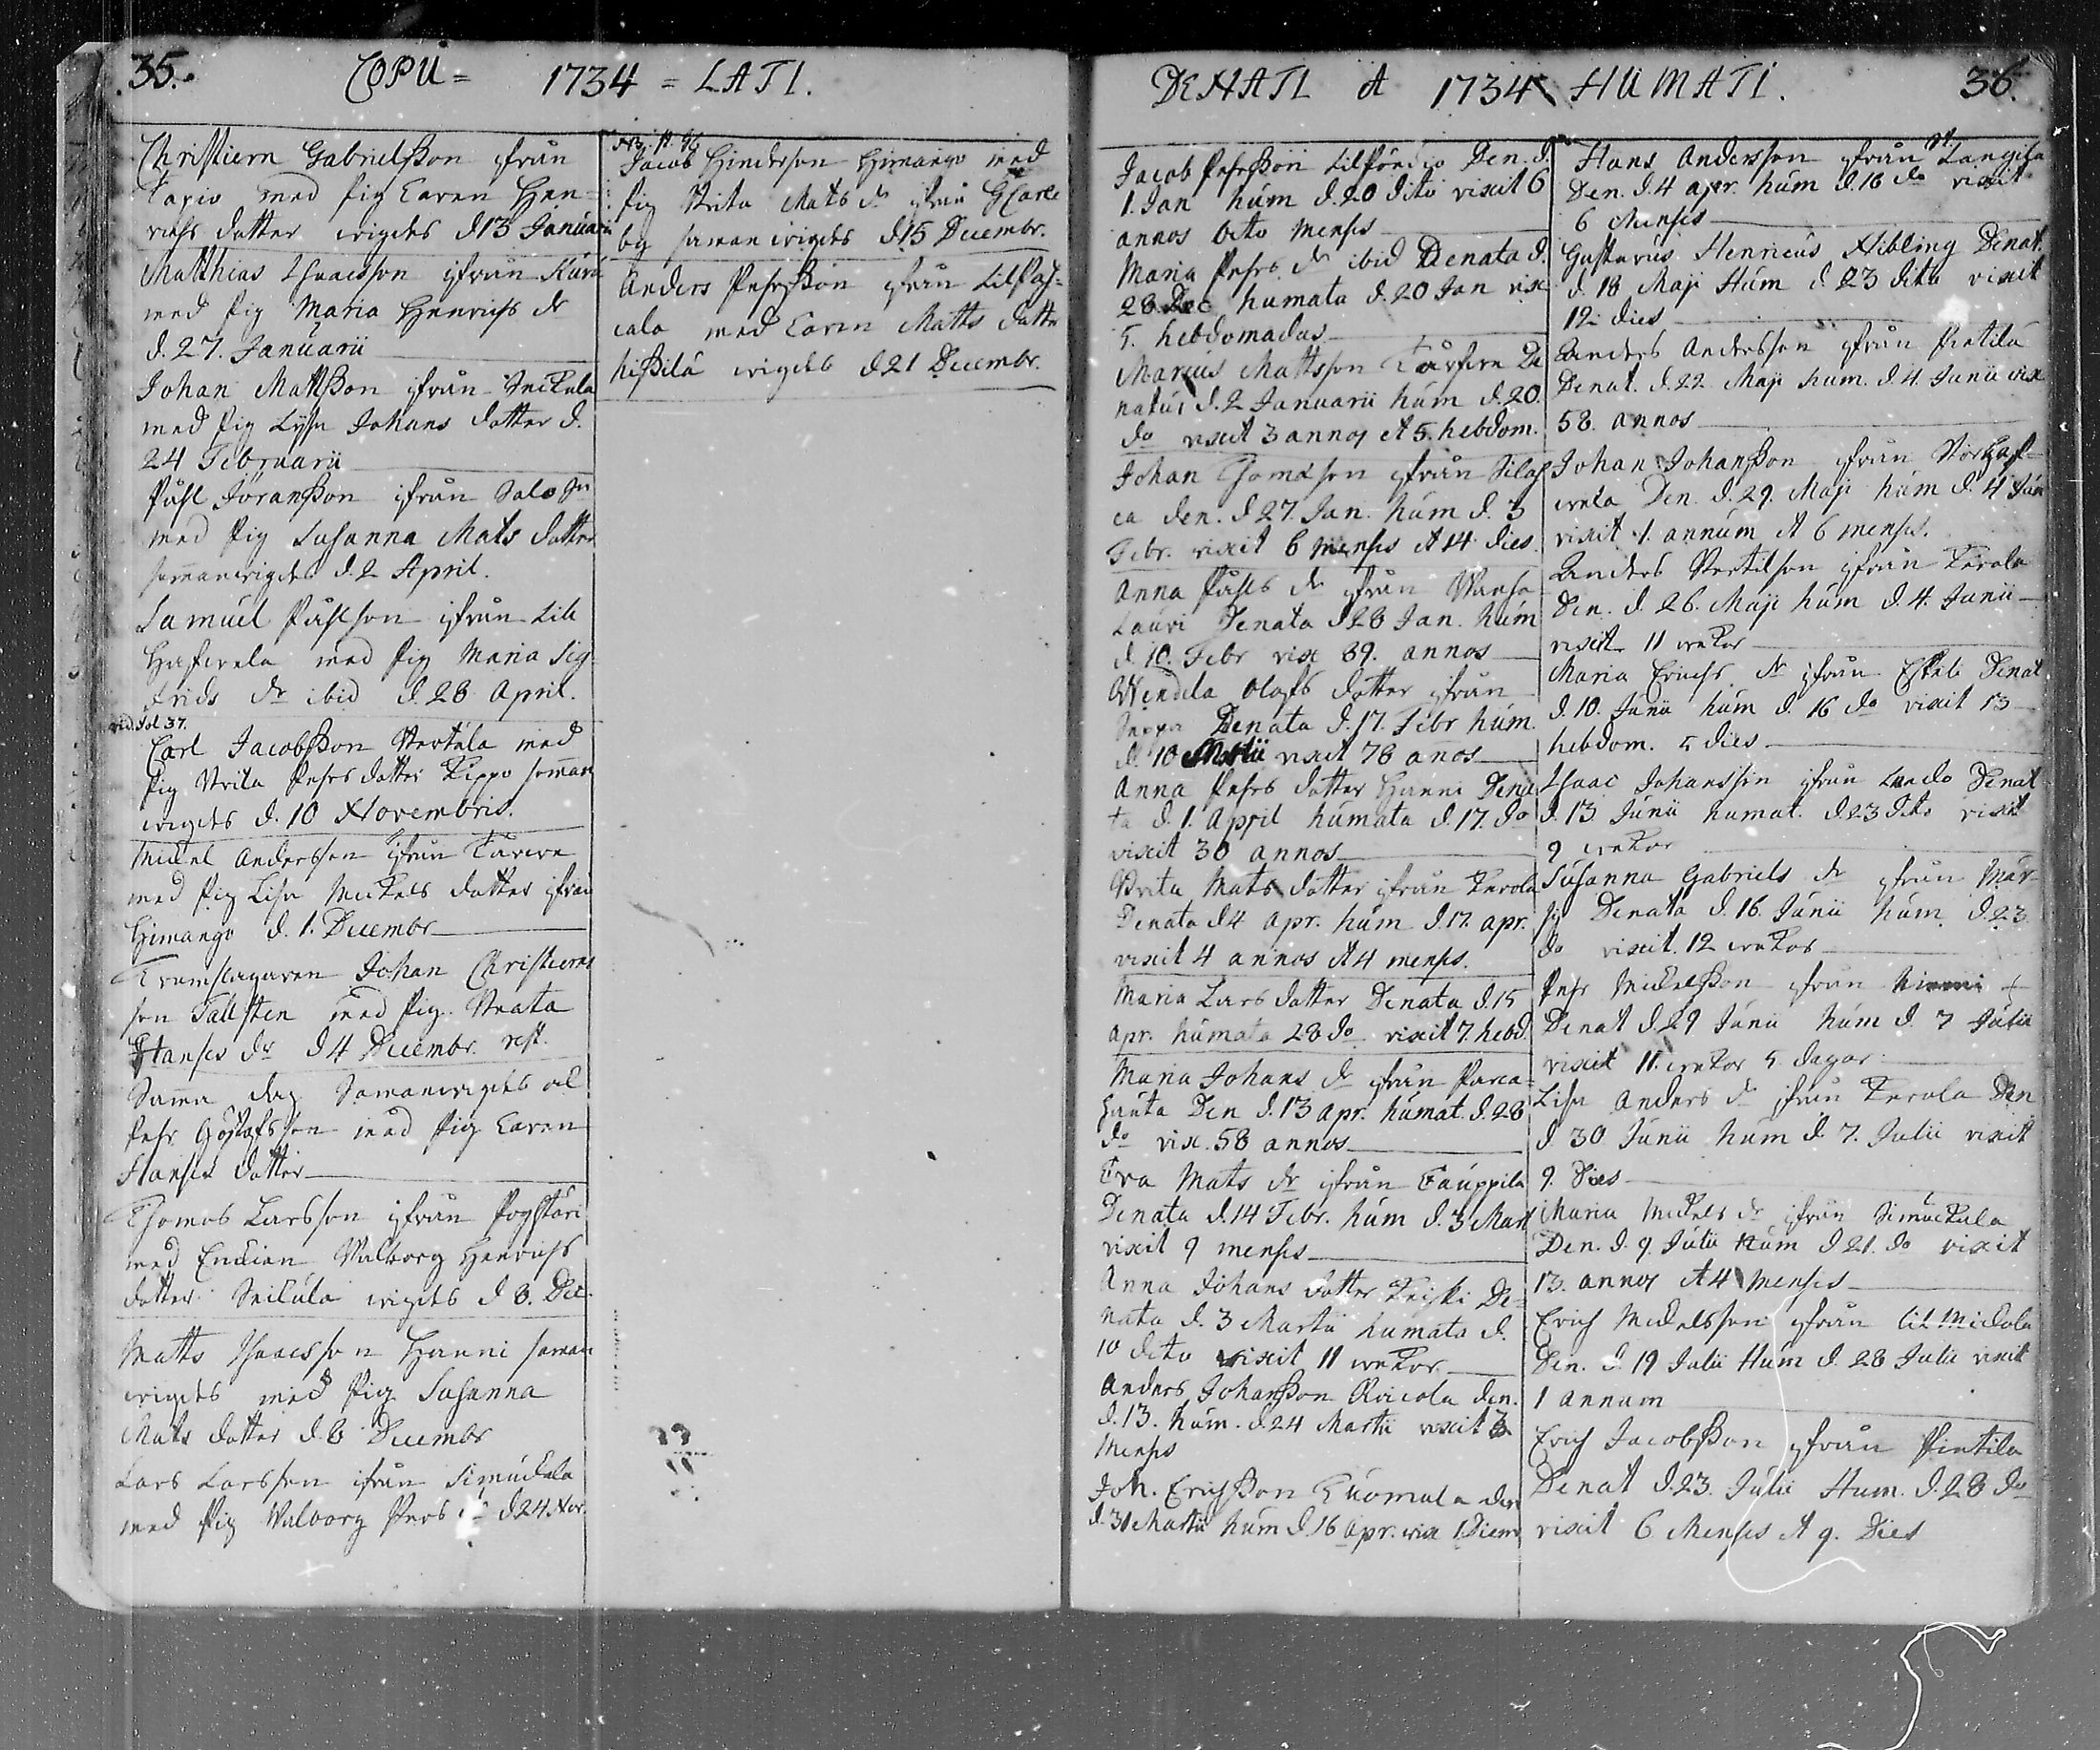 35.
COPU = 1734 = LATI.
Christiern Gabrielsson ifrån
Tapio med pig Caren Hen=
richs dotter wigdes d 13 Januarii
Matthias Isaacsson ifrån
med pig Maria Henrichs dr
d. 27. Januarii
Johan Mattsson ifrån Seikala
med pig Lisa Johans dotter d.
24 Februarii
Påhl Jöransson ifrån Salo
med pig Susanna Mats dotter
sammanwigdes d. 2 April.
Samuel Påhlson ifrån Lill
med pig Maria Sig
frids dr ibid d. 28 April.
vid. fol. 37.
Carl Jacobsson Wertala med
pig Brita Pehrs dotter Pippo samman
wigdes d. 10 Novembris.
Mickel Andersson ifrån
med pig Lisa Mickels dotter ifrån
Himango d. 1. Decembr
Johan Christierns
son Tallsten med pig Beata
Hanses dr d 4 Decembr.
Samma dag Samanwigdes
Pehr Göstafsson med pig Caren
Hanses dotter
Thomas Larsson ifrån
med Enckian Walborg Henrichs
dotter wigdes d 8. Dec.
Matts Isaacsson Hanni saman
wigdes med pig Susanna
Mats dotter d. 8 Decembr
Lars Larsson ifrån Simuckala
med pig Walborg Pers dr d 24 Nov.
Jacob Hinderson Himango med
pig Brita Mats dr ifrån
by saman wigdes d 15 Decembr.
Anders Pehrsson ifrån
cala med Caren Matts dotter
wigdes d 21 Decembr.
DENATI A 1734 HUMATI. 36.
Jacob Pehrsson Lillpöndiö Den. d.
1. Jan hum d. 20 dito vixit 6
annos octo menses
Maria Pehrs dr ibid Denata d.
28 Dec humata d. 20 Jan vix
5. hebdomadas
Marcus Mattsson De
natus d. 2 Januarii hum d. 20.
do vixit 3 annos et 5. hebdom.
Johan Thomasson ifrån
ca den. d 27. Jan. hum d. 3
Febr. vixit 6 menses et 14 dies.
Anna Påhls dr ifrån
Lauri Denata d 28 Jan. hum
d. 10. Febr vix 89. annos
Wendela Olofs dotter ifrån
Denata d. 17. Febr hum.
d. 10 Martii vixit 78 anos
Anna Pehrs dotter Hanni Dena
ta d. 1. April humata d. 17. do
vixit 30 annos
Brita Mats dotter ifrån Kerola
Denata d 4 apr. hum d. 17. apr.
vixit 4 annos et 4 menses.
Maria Lars dotter Denata d. 15
apr. humata 28 do vixit 7. hebd.
Maria Johans dr ifrån
Den d. 13 apr. humat. d. 28
do vix. 58 annos
Eva Mats dr ifrån Cauppila
Denata d. 14 Febr. hum d. 3 Mart
vixit 9 menses
Anna Johans dotter De=
nata d. 3 Martii humata d.
10 dito vixit 11 wekor
Anders Johansson den.
d. 13. hum. d. 24 Martii vixit 3
menses
Joh. Erichsson Tuomala den
d. 31 Martii hum d. 16 apr. vix 1. Diem
Hans Andersson ifrån
Den. d. 4 apr. hum d. 16 do vixit
6 Menses
Gustavus Henricus Nibling Denat.
d. 18 Maji Hum d 23 dito vixit
12 dies
Anders Andersson ifrån Pietilä
Denat. d. 22 Maji hum. d. 4. Junii vix.
58. annos
Johan Johansson ifrån
Den. d. 29. Maji hum d. 4 Jun
vixit 1. annum et 6 menses.
Anders Bertelson ifrån Kerola
Den. d. 26. Maji hum d. 4. Junii
vixit 11 wekor
Maria Erichs dr ifrån Eskeli Denat
d. 10. Junii hum d. 16 do vixit 13
hebdom. 5 dies
Isaac Johansson ifrån Denat
d. 13 Junii humat. d 23 dito vixit
9 wekor
Susanna Gabriels dr ifrån
Denata d. 16. Junii hum d. 23.
do vixit. 12 wekor
Pehr Mickelsson ifrån Niemi
Denat d. 29 Junii hum d. 7 Julii
vixit 11. wekor 5. dagar
Lisa Anders dr ifrån Kerola Den
d. 30 Junii hum d. 7. Julii vixit
9. Dies
Maria Mickels dr ifrån Simuckala
Den. d. 9. Julii Hum d 21. do vixit
13. annos et 4 menses
Erich Mickelsson ifrån Lill Mickola
Den. d. 19 Julii Hum d. 28 Julii vixit
1 annum
Erich Jacobsson ifrån Pietilä
Denat d. 23. Julii Hum. d. 28 do
vixit 6 Menses et 9. Dies